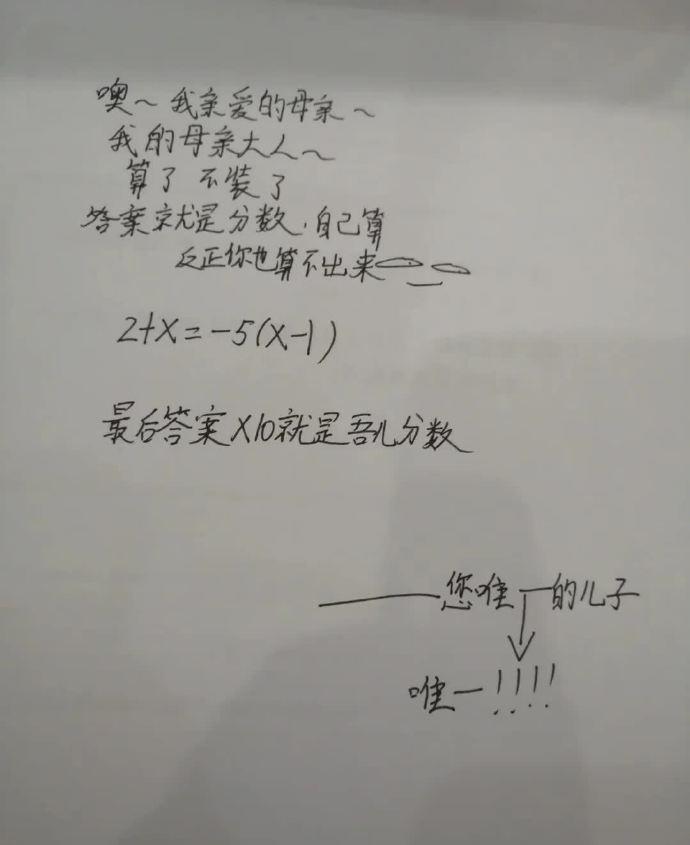 噢～我亲爱的母亲～
我的母亲大人～
算了 不装了
答案就是分数，自己算
反正你也算不出来
2+x=-5(x-1)
最后答案X10就是吾儿分数
——您唯一的儿子
唯一!!!!